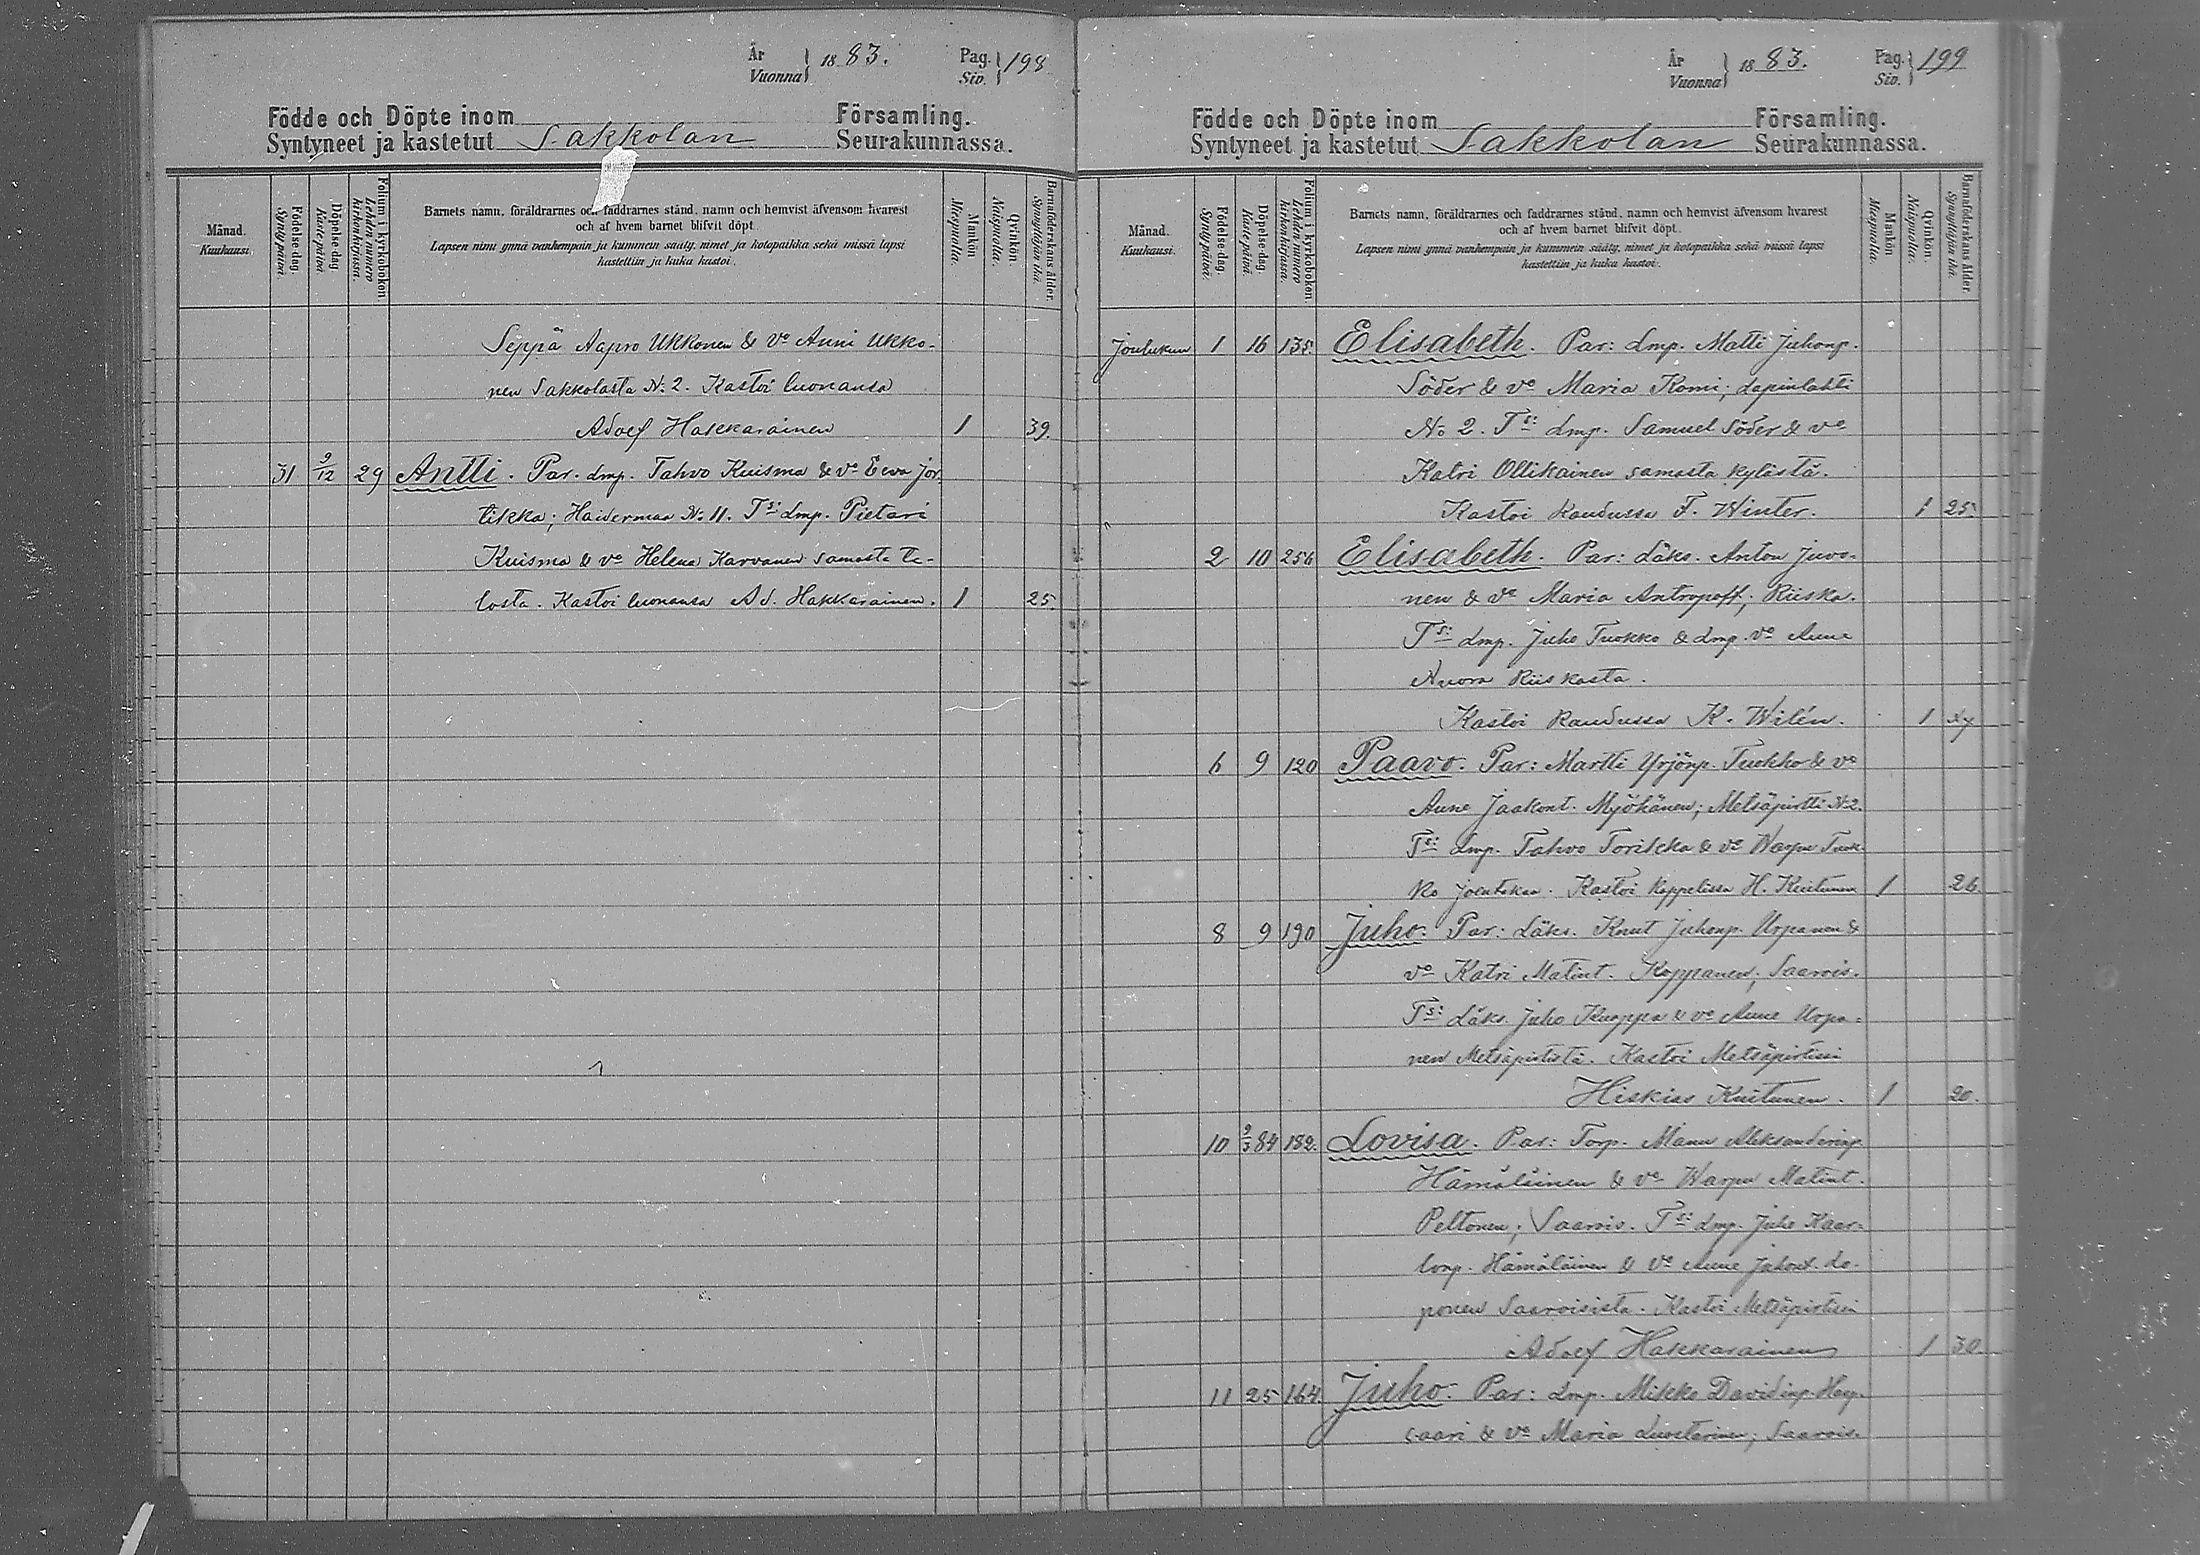 År Vuonna } 1883. Pag. Siv. } 198
Födde och Döpte inom Församling.
Syntyneet ja kastetut Sakkolan Seurakunnassa.
Månad. Kuukausi.
Födelsedag Syntypäivä.
Döpelsedag Kastepäivä.
Folium i kyrkoboken Lehden numero kirkonkirjassa.
Barnets namn, föräldrarnes och faddrarnes stånd, namn och hemvist äfvensom hvarest
och af hvem barnet blifvit döpt.
Lapsen nimi ynnä vanhempain ja kummein sääty, nimet ja kotopaikka sekä missä lapsi
kastettiin ja kuka kastoi.
Mankön Miespuolia.
Qvinkön. Naispuolia.
Barnaföderskans ålder. Synnyttäjän ikä.
Seppä Aapro Ukkonen & vo Anni Ukko-
nen Sakkolasta No: 2. Kastoi luonansa
Adolf Hakkarainen 1 39.
31 9/12 29 Antti. Par. Lmp. Tahvo Kuisma & vo Eeva Jor-
tikka; Haiderman No: 11. Ts: Lmp. Pietari
Kuisma & vo Helena Karvanen samasta ta-
losta. Kastoi luonansa Ad. Hakkarainen. 1 25.
År Vuonna } 1883. Pag. Siv. } 199
Födde och Döpte inom Församling.
Syntyneet ja kastetut Sakkolan Seurakunnassa.
Månad. Kuukausi.
Födelsedag Syntypäivä.
Döpelsedag Kastepäivä.
Folium i kyrkoboken Lehden numero kirkonkirjassa.
Barnets namn, föräldrarnes och faddrarnes stånd, namn och hemvist äfvensom hvarest
och af hvem barnet blifvit döpt.
Lapsen nimi ynnä vanhempain ja kummein sääty, nimet ja kotopaikka sekä missä lapsi
kastettiin ja kuka kastoi.
Mankön Miespuolia.
Qvinkön. Naispuolia.
Barnaföderskans ålder. Synnyttäjän ikä.
Joulukuu 1 16 135. Elisabeth. Par: Lmp. Matti Juhonp.
Söder & vo Maria Komi; Lapinlahti
No 2. Ts: Lmp. Samuel Söder & vo
Katri Ollikainen samasta kylästä.
Kastoi Raudussa F. Winter. 1 25.
2 10 256 Elisabeth. Par: Läks. Anton Juvo-
nen & vo Maria Antropoff; Riiska.
Ts: Lmp. Juho Tuokko & Lmp. vo Anne
Nuora Riiskasta.
Kastoi Raudussa K. Wilén. 1
6 9 120 Paavo. Par: Martti Yrjönp. Tuokko & vo
Anne Jaakont. Myöhänen; Metsäpirtti No 2.
Ts: Lmp. Tahvo Torikka & vo Warpu Tuok-
ko Joentakaa. Kastoi Kappelissa H. Kuitunen 1 26.
8 9 190 Juho. Par: Läks. Knut Juhonp. Urpanen &
vo Katri Matint. Koppanen; Saarois.
Ts: Läks. Juho Kuoppa & vo Anne Urpa-
nen Metsäpirtistä. Kastoi Metsäpirtissä
Hiskias Kuitunen. 1 20.
10 9/3 84 182. Lovisa. Par: Torp. Manu Aleksanderinp.
Hämäläinen & vo Warpu Matint.
Peltonen; Saarois. Ts: Lmp. Juho Kaar-
lonp. Hämäläinen & vo Anne Juhont. Lo-
ponen Saaroisista. Kastoi Metsäpirtissä
Adolf Hakkarainen 1 30.
11 25 164. Juho. Par: Lmp. Mikko Davidinp.
saari & vo Maria; Saarois.